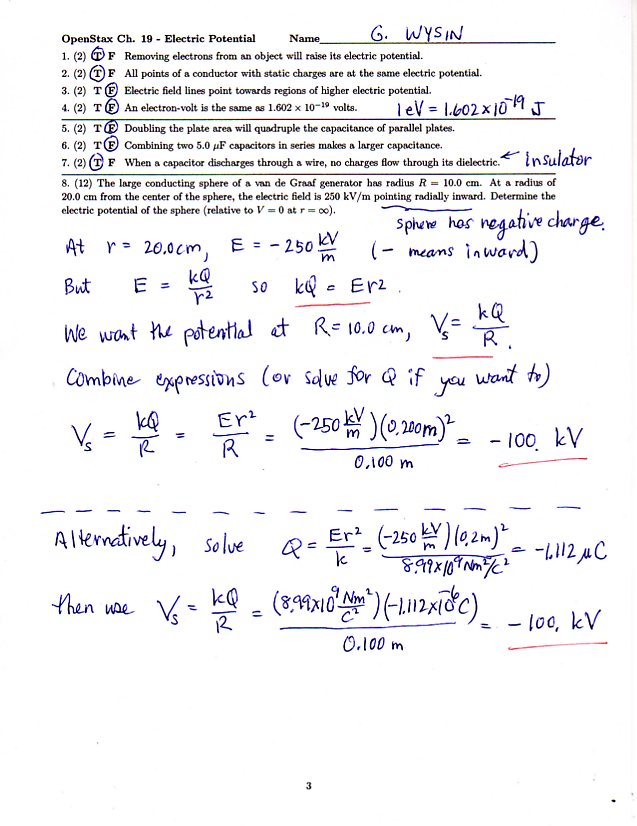 OpenStax Ch. 19 - Electric Potential Name G. WYSIN
1. (2) T F Removing electrons from an object will raise its electric potential.
2. (2) T F All points of a conductor with static charges are at the same electric potential.
3. (2) T F Electric field lines point towards regions of higher electric potential.
4. (2) T F An electron-volt is the same as 1.602 × 10⁻¹⁹ volts. 1 eV = 1.602 × 10⁻¹⁹ J
5. (2) T F Doubling the plate area will quadruple the capacitance of parallel plates.
6. (2) T F Combining two 5.0 μF capacitors in series makes a larger capacitance.
7. (2) T F When a capacitor discharges through a wire, no charges flow through its dielectric. ← insulator
8. (12) The large conducting sphere of a van de Graaf generator has radius R = 10.0 cm. At a radius of
20.0 cm from the center of the sphere, the electric field is 250 kV/m pointing radially inward. Determine the
electric potential of the sphere (relative to V = 0 at r = ∞).
sphere has negative charge.
At r = 20.0cm, E = -250 kV/m (- means inward)
But E = kQ/r² so kQ = Er².
We want the potential at R = 10.0 cm, Vₛ = kQ/R.
Combine expressions (or solve for Q if you want to)
Vₛ = kQ/R = Er²/R = (-250 kV/m)(0.200m)²/0.100 m = -100. kV
Alternatively, solve Q = Er²/k = (-250 kV/m)(0.2m)²/8.99×10⁹Nm²/C² = -1.112 μC
then use Vₛ = kQ/R = (8.99×10⁹ Nm²/C²)(-1.112×10⁻⁶C)/0.100 m = -100. kV
3